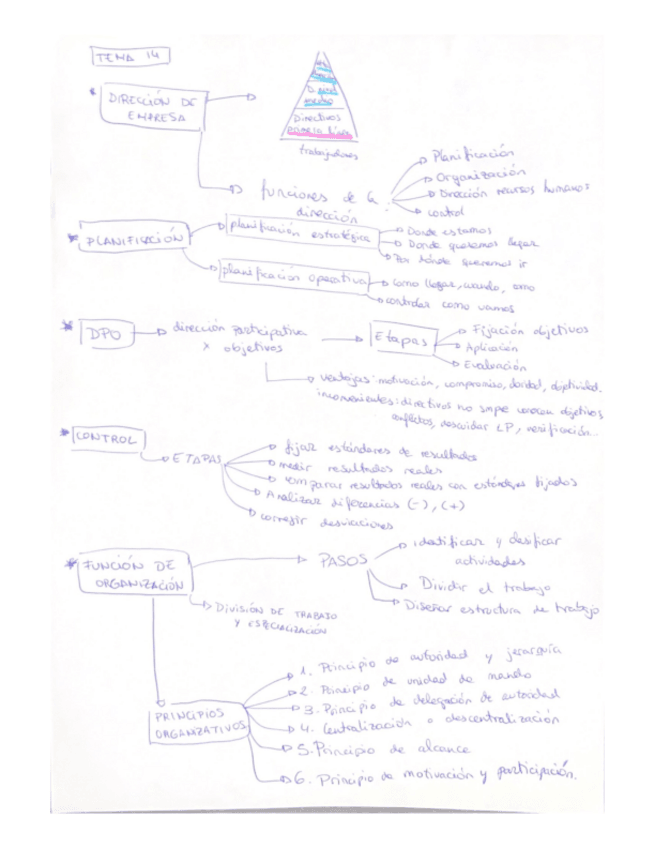 TEMA 14
* DIRECCIÓN DE
EMPRESA
Alta
Dirección
D. nivel
medio
Directivos
primera línea
trabajadores
funciones de la
dirección
Planificación
Organización
Dirección recursos humanos
control
* PLANIFICACIÓN
planificación estratégica
Donde estamos
Donde queremos llegar
Por dónde queremos ir
planificación operativa
como llegar, cuando, como
controlar como vamos
* DPO
dirección participativa
x objetivos
Etapas
Fijación objetivos
Aplicación
Evaluación
ventajas: motivación, compromiso, claridad, objetividad.
inconvenientes: directivos no smpre conocen objetivos
conflictos, descuidar LP, verificación...
* CONTROL
ETAPAS
fijar estándares de resultados
medir resultados reales
comparar resultados reales con estándares fijados
Analizar diferencias (-), (+)
corregir desviaciones
* FUNCIÓN DE
ORGANIZACIÓN
PASOS
identificar y clasificar
actividades
Dividir el trabajo
Diseñar estructura de trabajo
DIVISIÓN DE TRABAJO
Y ESPECIALIZACIÓN
PRINCIPIOS
ORGANIZATIVOS
1. Principio de autoridad y jerarquía
2. Principio de unidad de mando
3. Principio de delegación de autoridad
4. Centralización o descentralización
5. Principio de alcance
6. Principio de motivación y participación.